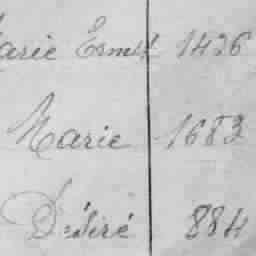 Marie Ernest 1426
Marie 1683
Désiré 884